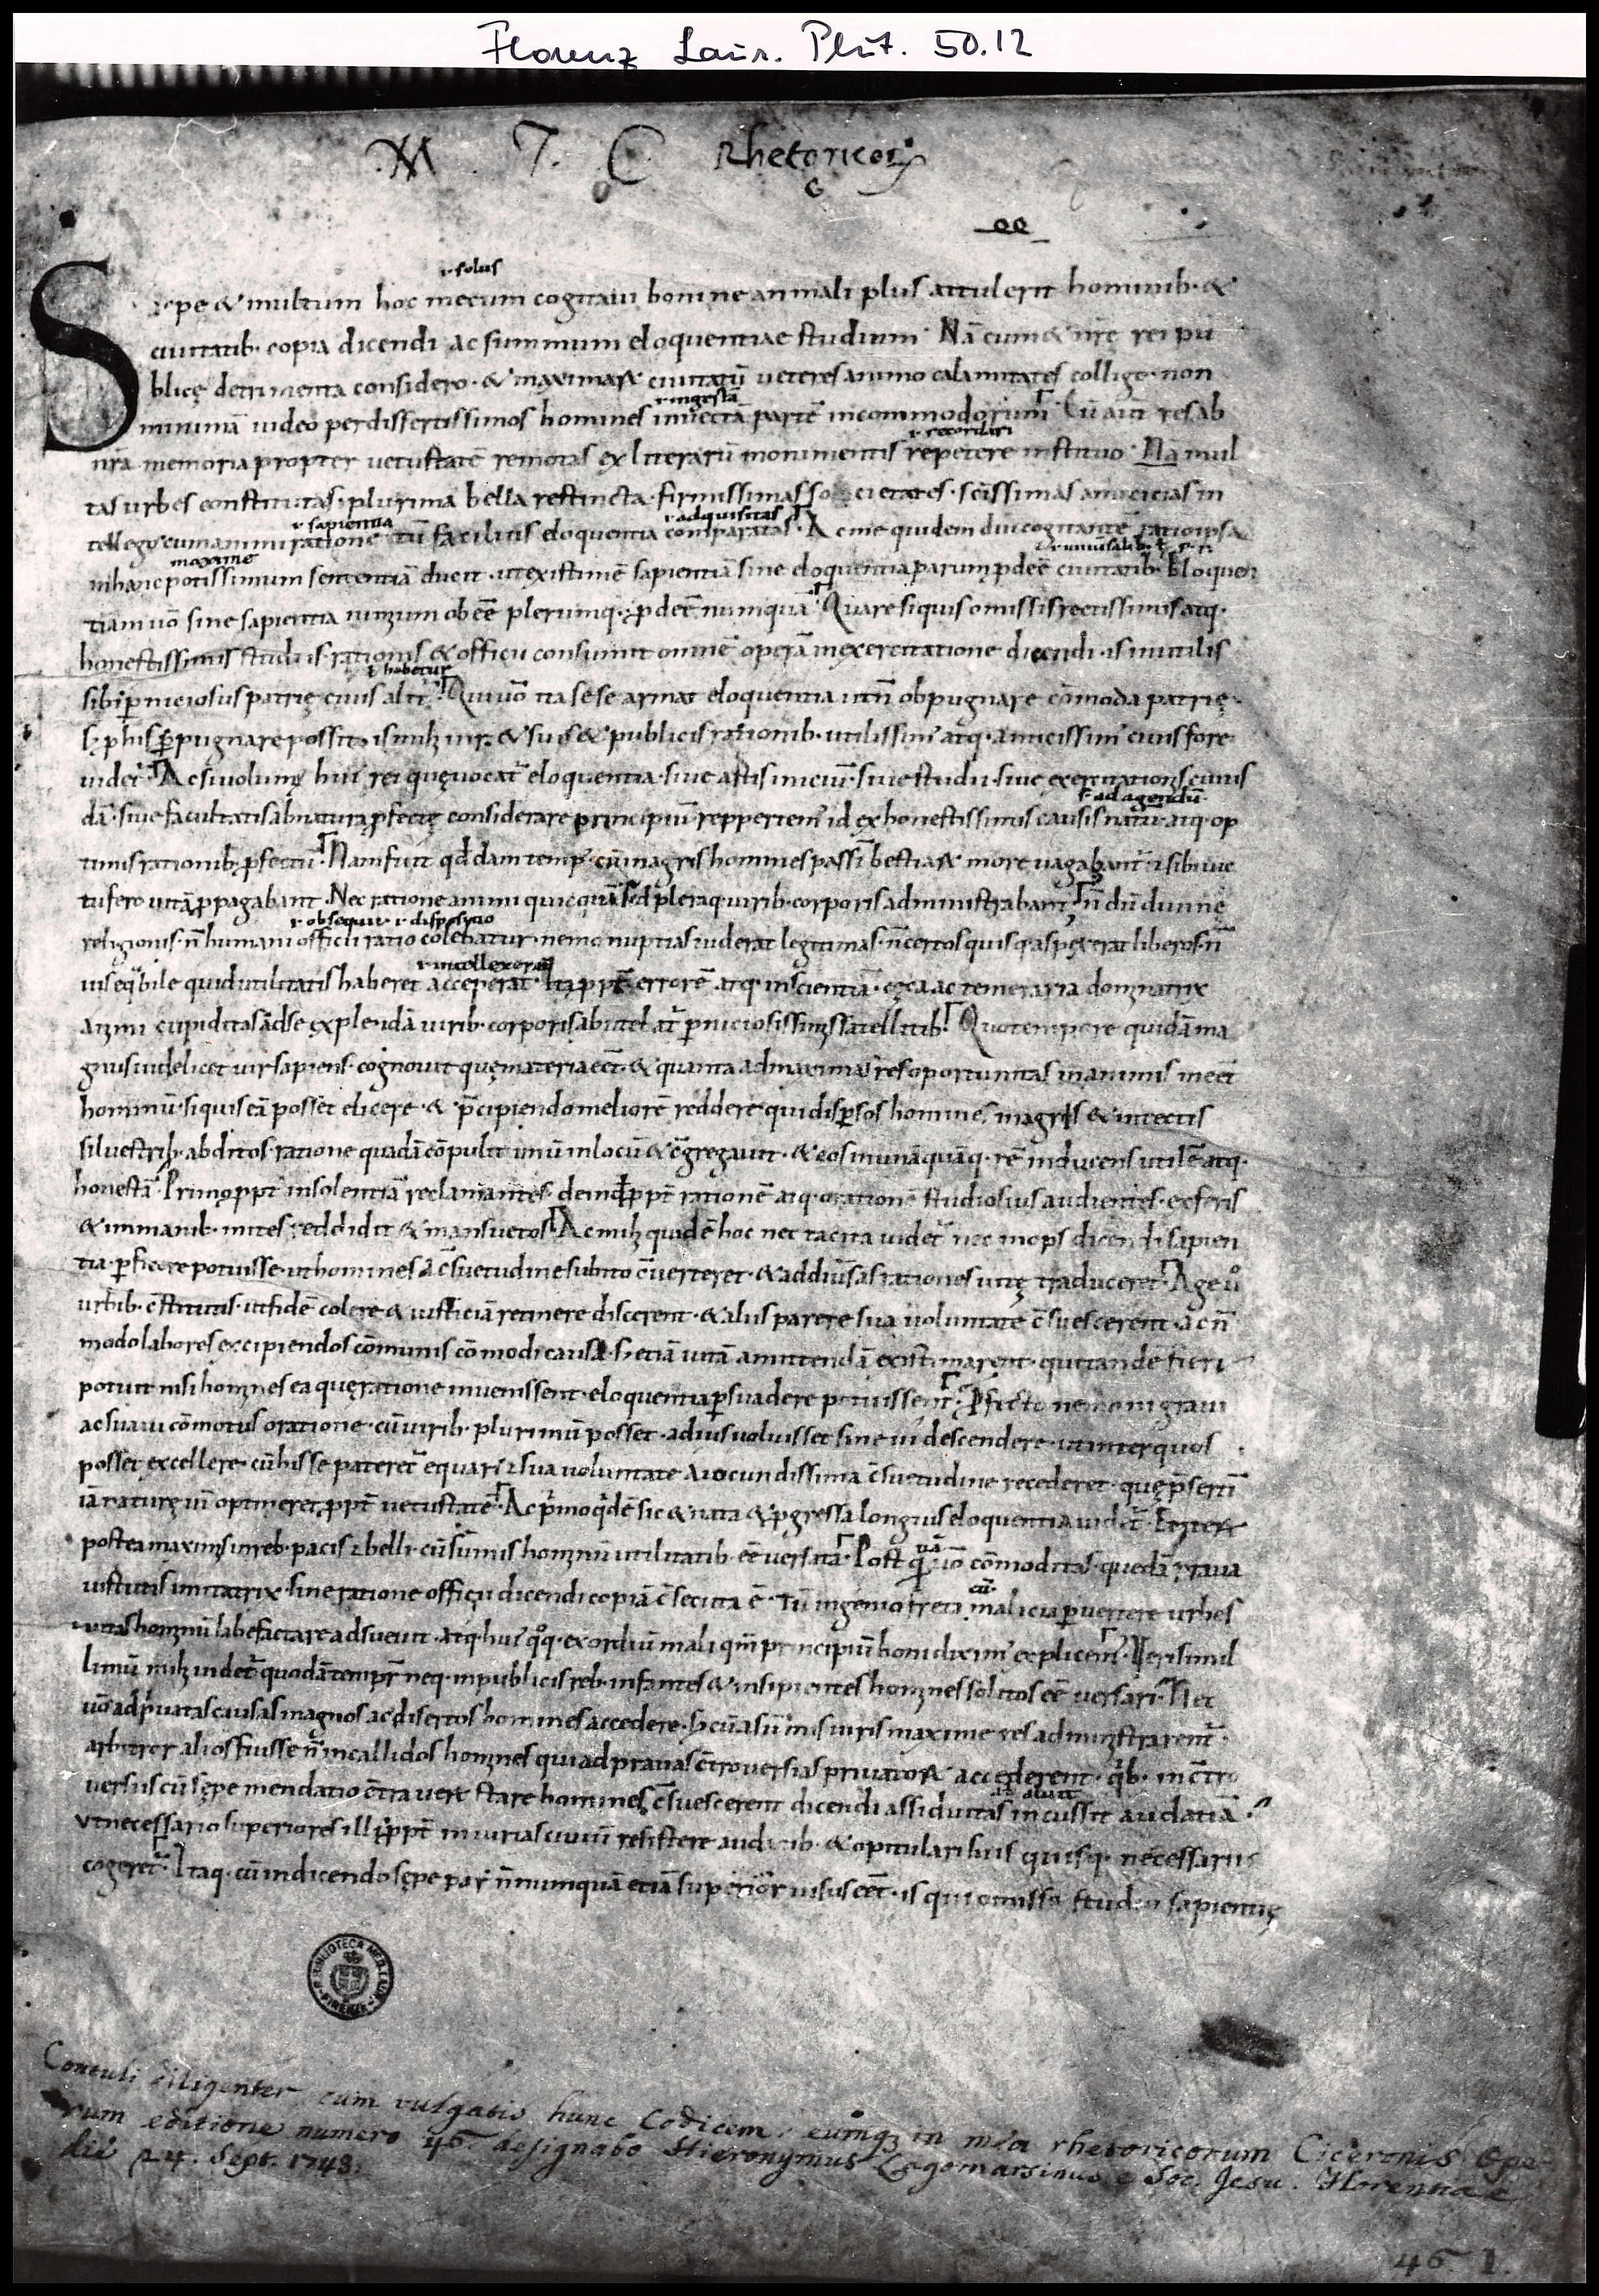 Florenz Laur. Plut. 50.12
M T. C Rhetoricoꝝ
i. solus
Sepe & multum hoc mecum cogitaui bonine an mali plus attulerit hominib· &
ciuitatib· copia dicendi ac summum eloquentiae studium· Nā cum & nrę rei pu
blicę detrimenta considero· & maximaꝝ ciuitatū ueteres animo calamitates colligo· non
i. ingestā
minimā uideo per dissertissimos homines inuectā partē incommodorum· Cū aūt res ab
i. recordari
nrā memoria propter uetustatē remotas ex literarū monumentis repetere instituo· Nā mul
tas urbes constitutas· plurima bella restincta· firmissimas so cietates· scīssimas amicicias in
i. sapientia i. adquisitas
tellego cum animi ratione tū facilius eloquentia comparatas· Ac me quidem diu cogitantē ratio ipsa
maxime
in hanc potissimum sententiā ducit· ut existimē sapientiā sine eloquentia parum ꝓdeē ciuitatib· Eloquen
tiam uō sine sapientia nimium obeē plerumq· ꝓdeē numquā· Quare siquis omissis rectissimis atq·
honestissimis studiis rationis & officii consumit omnē operā in exercitatione dicendi· is inutilis
ł habetur
sibi ꝑniciosus patrię ciuis alit̄· Qui uō ita sese armat eloquentia ut n̄ obpugnare cōmoda patrię·
sꝫ ꝓ his ꝓpugnare possit· is mihꝫ uir· & suis & publicis rationib· utilissim' atq· amicissim' ciuis fore
uidet̄· Ac si uolum' hui' rei quę uocat̄ eloquentia· siue artis iniciū· siue studii· siue exercitationis cuius
s. ad agendū
dā· siue facultatis ab natura ꝓfectę considerare principiū· repperiem' id ex honestissimis causis natū atq· op
timis rationib· ꝓfectū· Nam fuit qd̄dam temp' cū in agris homines passī bestiaꝝ more uagabant̄· & sibi uic
tu fero uitā ꝓpagabant· Nec ratione animi quicquā sed pleraq· uirib· corporis administrabant· n̄dū diuinę
i. obsequii· i. dispositio
religionis· n̄ humani officii ratio colebatur· nemo nuptias uiderat legitimas· n̄ certos quisq· aspexerat liberos· n̄
i. intellexerat
ius eq̄bile quid utilitatis haberet acceperat· Ita ꝓpt̄ errorē atq· inscientiā· cęca ac temeraria dominatrix
animi cupiditas ad se explendā uirib· corporis abutebat̄ ꝑniciosissimis satellitib· Quo tempore quidā ma
gnus uidelicet uir sapiens· cognouit quę materia eēt· & quanta ad maximas res oportunitas in animis ineēt
hominū· siquis eā posset elicere· & p̄cipiendo meliorē reddere· qui disꝑsos homines in agris & in tectis
siluestrib· abditos ratione quadā cōpulit unū in locū & c̄gregauit· & eos in unā quāq· rē inducens utilē atq·
honestā· Primo ꝓpt̄ insolentiā reclamantes· deinde ꝓpt̄ rationē atq· orationē studiosius audientes· ex feris
& immanib· mites reddidit & mansuetos· Ac mihꝫ quidē hoc nec tacita uidet̄ nec inops dicendi sapien
tia ꝑficere potuisse· ut homines a c̄suetudine subito c̄uerteret· & ad diuersas rationes uitę traduceret· Age uō
urbib· c̄stitutis· ut fidē colere & iusticiā retinere discerent· & aliis parere sua uoluntate c̄suescerent· ac n̄
modo labores excipiendos cōmunis cōmodi causa· sꝫ etiā uitā amittendā existimarent· qui tandē fieri
potuit nisi homines ea quę ratione inuenissent· eloquentia ꝑsuadere potuissent· Profecto nemo nisi graui
ac suaui cōmotus oratione· cū uirib· plurimū posset· ad ius uoluisset sine ui descendere· ut inter quos
posset excellere· cū his se pateret̄ equari· & sua uoluntate a iocundissima c̄suetudine recederet· quę p̄sertī
iā naturę uim optineret ꝓpt̄ uetustatē· Ac p̄mo qidē sic & nata & ꝓgressa longius eloquentia uidet̄·
postea maximis in reb· pacis & belli· cū sūmis hominū utilitatib· eē uersata· Post q̄m uō cōmoditas quedā praua
uirtutis imitatrix· sine ratione officii dicendi copiā c̄secuta ē· Tū ingenio freta malicia ꝑuertere urbes
uitas hominū labefactare adsueuit· atq· hui' q̊q· exordiū mali qm̄ principiū boni dixim' explicem'· Uerisimil
limū mihꝫ uidet̄ quodā tempr̄ neq· in publicis reb· infantes & insipientes homines solitos eē uersari· Nec
uō ad p̄uatas causas magnos ac disertos homines accedere· sꝫ cū a sūmis uiris maxime res administrarent̄·
arbitror alios fuisse n̄ incallidos homines qui ad prauas c̄trouersias priuatoꝝ accederent· qib· in c̄tro
uersiis cū sępe mendatio c̄tra uerū stare homines c̄suescerent dicendi assiduitas incussit audatiā·
ut necessario superiores illi ꝓpt̄ iniurias ciuiū resistere audacib· & opitulari suis quisq· necessariis
cogeret̄· Itaq· cū in dicendo sępe par n̄numquā etiā superior uisus eēt· is qui omisso studio sapientię
R. BIBLIOTECA MED. LAUR. FIRENZE
Contuli diligenter cum vulgatis hunc Codicem; eumqꝫ in mea rhetoricorum Ciceronis Ope-
rum editione numero 46. designabo Hieronymus Lagomarsinus e Soc. Jesu. Florentiae
die 24. Sept. 1743.
46 1.